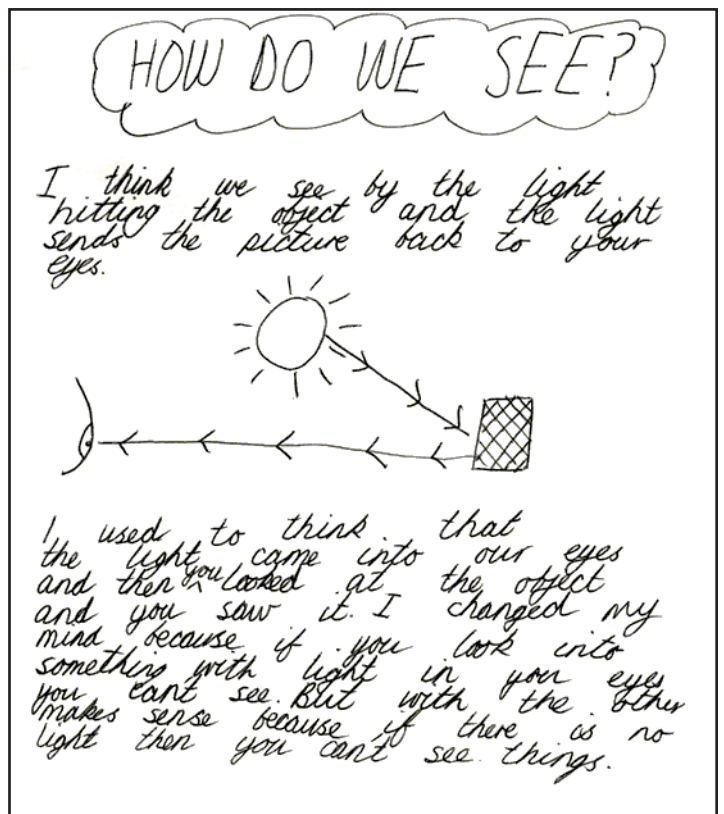 HOW DO WE SEE?
I think we see by the light
hitting the object and the light
sends the picture back to your
eyes.
I used to think that
the light came into our eyes
and then you looked at the object
and you saw it. I changed my
mind because if you look into
something with light in your eyes
you cant see. But with the other
makes sense because if there is no
light then you can't see things.